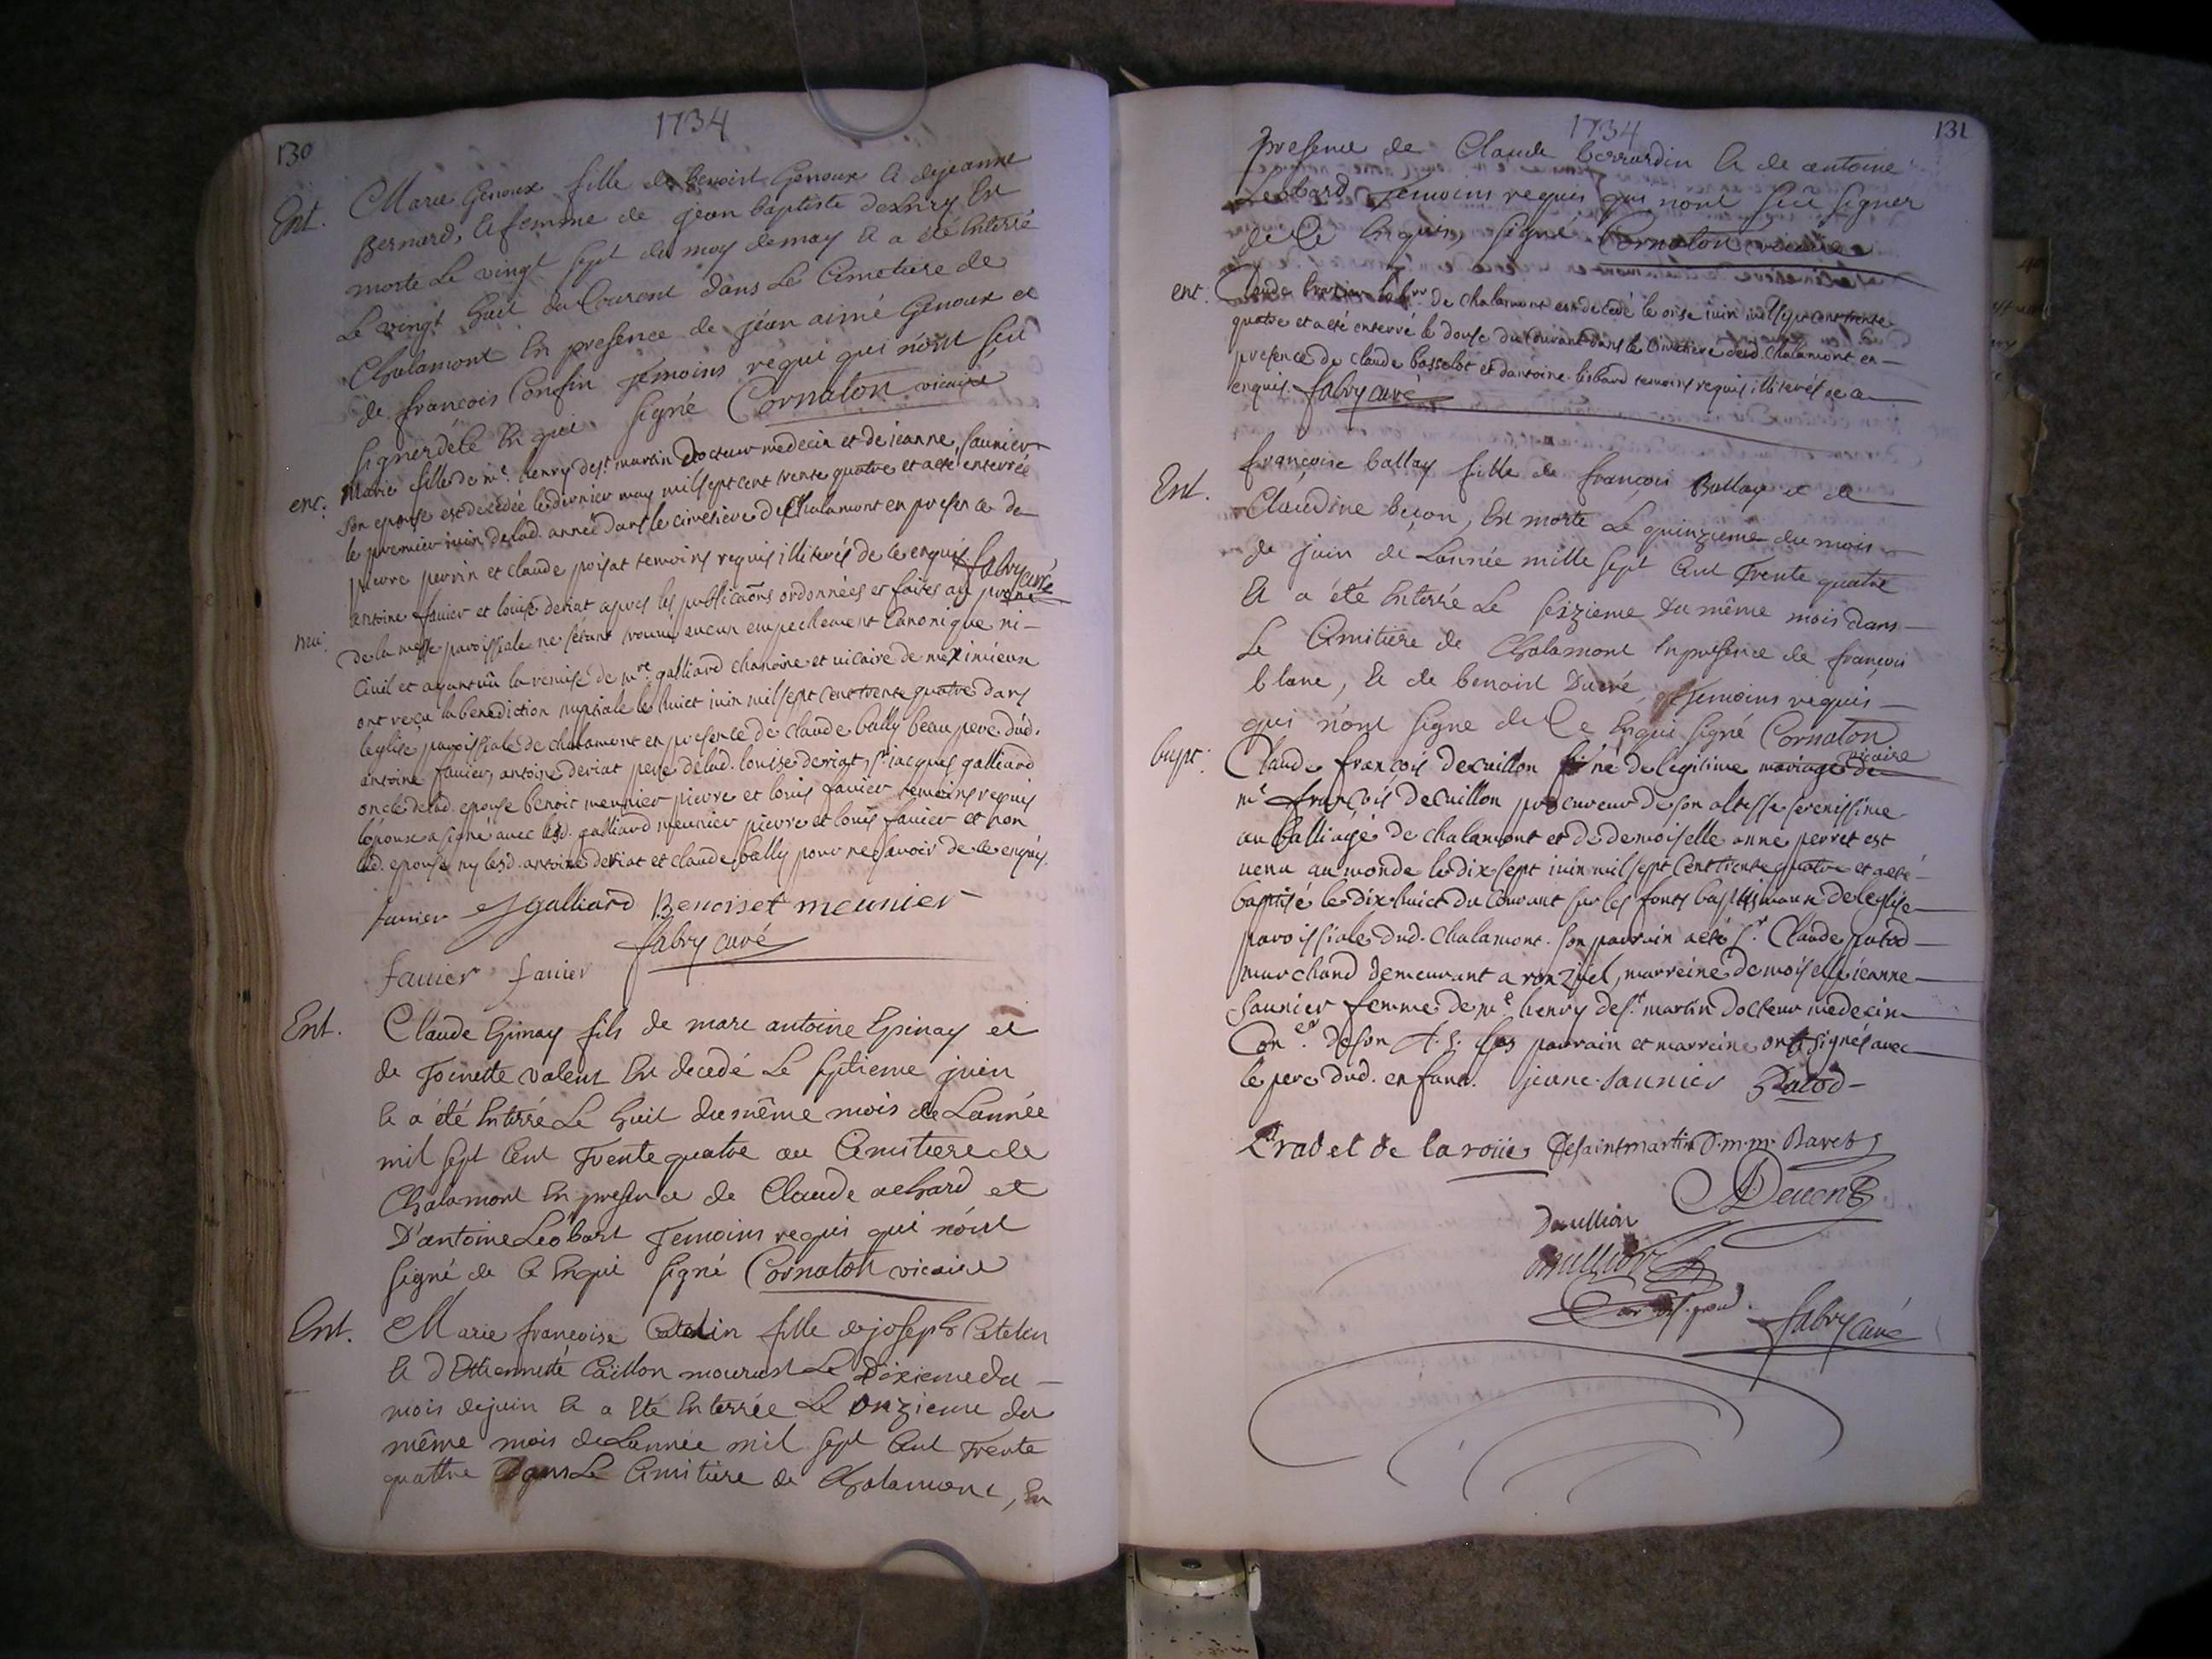 130
1734
Ent.
Marie Genoux fille de benoist Genoux & de jeanne
Bernard, & femme de jean baptiste
morte Le vingt sept du moy demay & a été Enterré
Le vingt huit du Courent dans Le Cimetiere de
Chalamont En presence de jéan aimé Genoux et
de françois Confin Témoins requi qui n'ont sçu
signer dele En qui signé Cornaton vicaire
ent.
Marie fille de mr. henry de st. martin Docteur medecin et de ieanne saunier
son epouse est decedée le dernier may mil sept cent trente quatre et a eté enterrée
le premier iuin delad. année dans le cimetiere de Chalamont en presence de
pierre perrin et claude poisat temoins requis illiterés de ce enquis fabry curé
antoine fauier et louise deriat apres les publicãons ordonnées et faites au prone
de la messe paroissiale ne s'étant trouué aucun empechement Canonique ni
Ciuil et ayant vû la remise de mre. galliard chanoine et uicaire de meximieux
ont reçu la benediction nuptiale le huict iuin mil sept cent trente quatre dans
leglise paroissiale de chalamont en presence de claude bally beau pere dud.
antoine fauier, antoine deriat pere delad. louise deriat, sr. iacques galliard
oncle delad. epouse benoit meunier pierre et louis fauier temoins requis
lépoux a signé avec lesd. galliard meunier pierre et louis fauier et non
lad. epouse ny lesd. antoine deriat et claude bally pour ne sauoir de ce enquis.
fauier Jgalliard Benoiset meunier
fabry curé
fauier fauier
Ent.
Claude Epinay fils de marc antoine Epinay et
de Toinette valent En decedé Le septieme juin
& a été Enterré Le huit du même mois de Lannée
mil sept Cent Trente quatre au Cimitiere de
Chalamont En presence de Claude achard et
D'antoine Leobart Temoins requis qui n'ont
signé de ce Enqui signé Cornaton vicaire
Ent.
Marie françoise Catelin fille de joseph Catelin
& d'Ettiennette Caïllon mourust Le Dixieme du
mois de juin & a Eté Enterrée Le onzieme du
même mois de Lannée mil sept Cent Trente
quattre Dans Le Cimitiere de Chalamont, En
131
1734
presence de Claude berrardin & de antoine
Leobard Temoins requis qui nont sçû signer
de Ce Enquis, signé Cornaton vicaire
ent.
Claude labr. de chalamont est decedé le onse iuin mil sept cent trente
quatre et a eté enterré le douse du courant dans le cimetiere dud. chalamont en
presence de claude basselot et d'antoine leobard temoins requis illiterés de ce
enquis. fabry curé
Ent.
françoise ballay fille de françois Ballay et de
Claudine beçon, En morte Le quinzieme du mois
de juin de Lannée mille sept Cent Trente quatre
& a été Enterré Le seizieme Du même mois dans
Le Cimitiere de Chalamont En presence de françois
blanc, & de benoist Ducré Temoins requis
qui n'ont signe de Ce Enqui signé Cornaton
vicaire
bapt.
Claude françois decuillon né de legitime mariage de
mr. françois decuillon procureur de son altesse serenissime
au balliage de chalamont et de demoiselle anne perret est
uenu au monde le dix sept iuin mil sept cent trente quatre et a eté
baptisé le dix huict du courant sur les fonts baptismaux de leglise
paroissiale dud. chalamont. son parrain a eté sr. Claude patod
marchand demeurant a ronzuel, marreine demoiselle ieanne
saunier femme de mr. henry de st. martin docteur medecin
Coner. de son A. S. les parrain et marreine ont signés avec
le pere dud. enfant. jeane saunier Patod
Pradel de la roüe Desaintmartin D.m.m. Baret
fabry curé